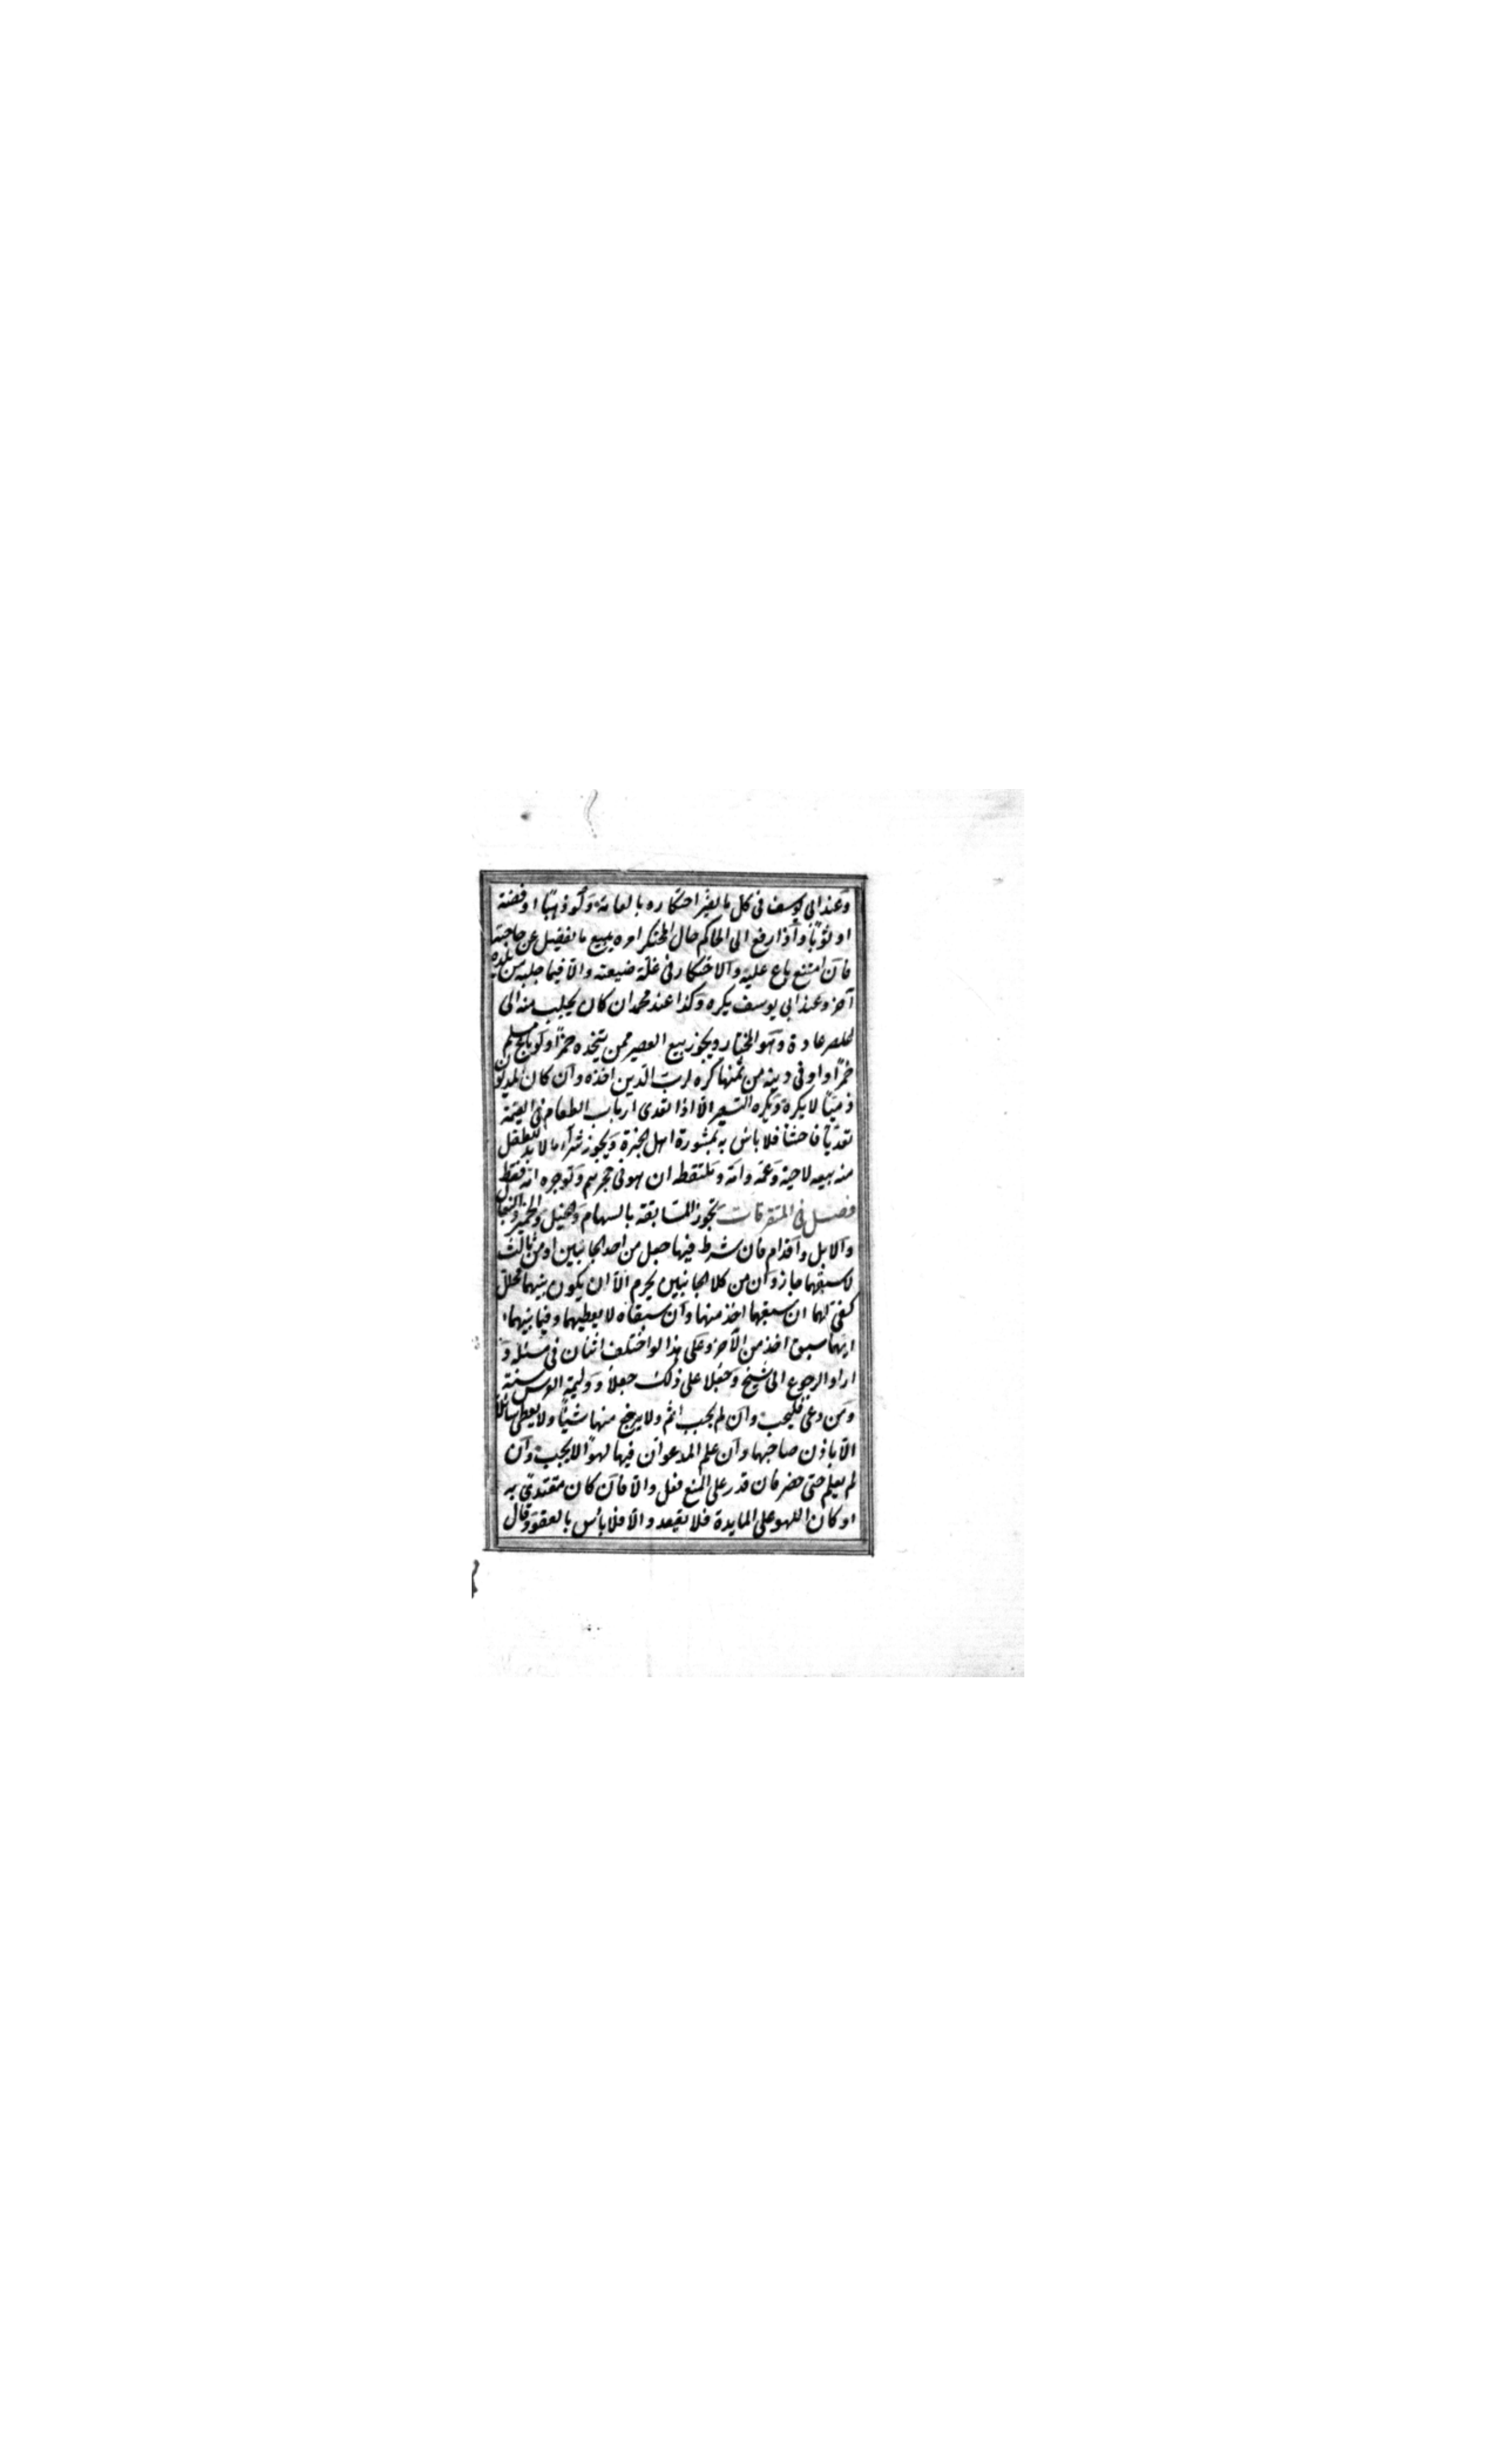 وعند ابي يوسف في كل ما يضر احتكاره بالعامة ولو ذهبا او فضة
او ثوبا واذا رفع الى الحاكم حال المحتكر امره ببيع ما يفضل عن حاجته
فان امتنع باع عليه ولا احتكار في غلة ضيعته ولا فيما جلبه من بلده
آخر وعند ابي يوسف يكره وكذا عند محمد ان كان يجلب منه الى
المصر عادة وهو المختار ويجوز بيع العصير ممن يتخذه خمرا ولو باع مسلم
خمرا واوفى دينه من ثمنها كره لرب الدين اخذه وان كان المديون
ذميا لا يكره ويكره التسعير الا اذا تعدى ارباب الطعام في القيمة
تعديا فاحشا فلا باس به بمشورة اهل الخبرة ويجوز شراء ما لا بد للطفل
منه وبيعه لاخيه وعمه وامه وملتقطه ان هو في حجرهم وتوجره امه فقط
فصل في المتفرقات تجوز المسابقة بالسهام والخيل والحمير والبغال
والابل والاقدام فان شرط فيها جعل من احد الجانبين او من ثالث
لاسبقهما جاز وان من كلا الجانبين يحرم الا ان يكون بينهما محلل
كفؤ لهما ان سبقهما اخذ منهما وان سبقاه لا يعطيهما وفيما بينهما
ايهما سبق اخذ من الآخر وعلى هذا لو اختلف اثنان في مسئلة و
ارادا الرجوع الى شيخ وجعلا على ذلك جعلا ووليمة العرس سنة
ومن دعي فليجب وان لم يجب اثم ولا يرفع منها شيئا ولا يعطي سائلا
الا باذن صاحبها وان علم المدعو ان فيها لهوا لا يجب وان
لم يعلم حتى حضر فان قدر على المنع فعل والا فان كان مقتدى به
او كان اللهو على المايدة فلا يقعد والا فلا بأس بالقعود وقال